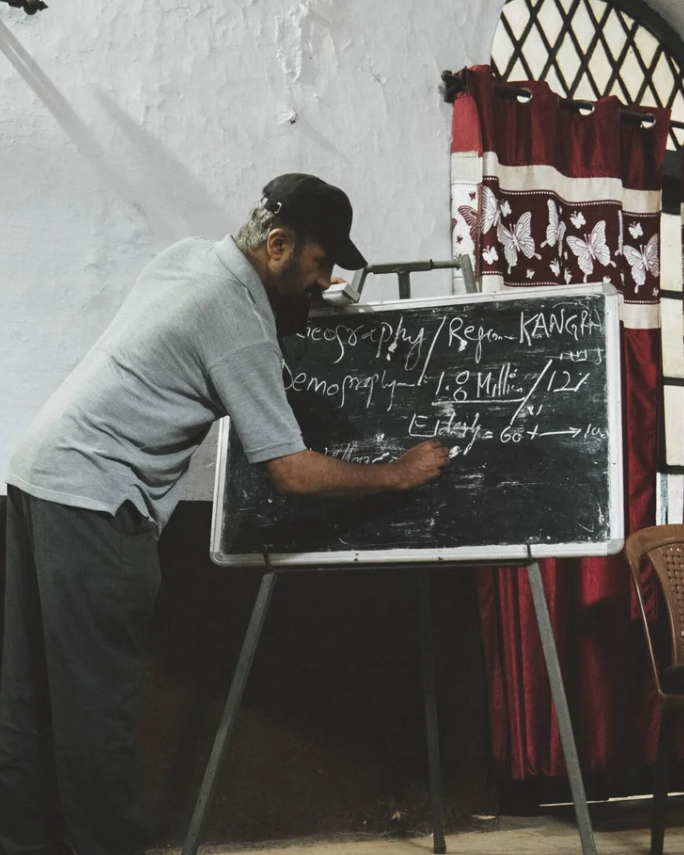 eography / Region KANGRA
Demography 1.8 Million / 12%
Elderly = 60+ → 100